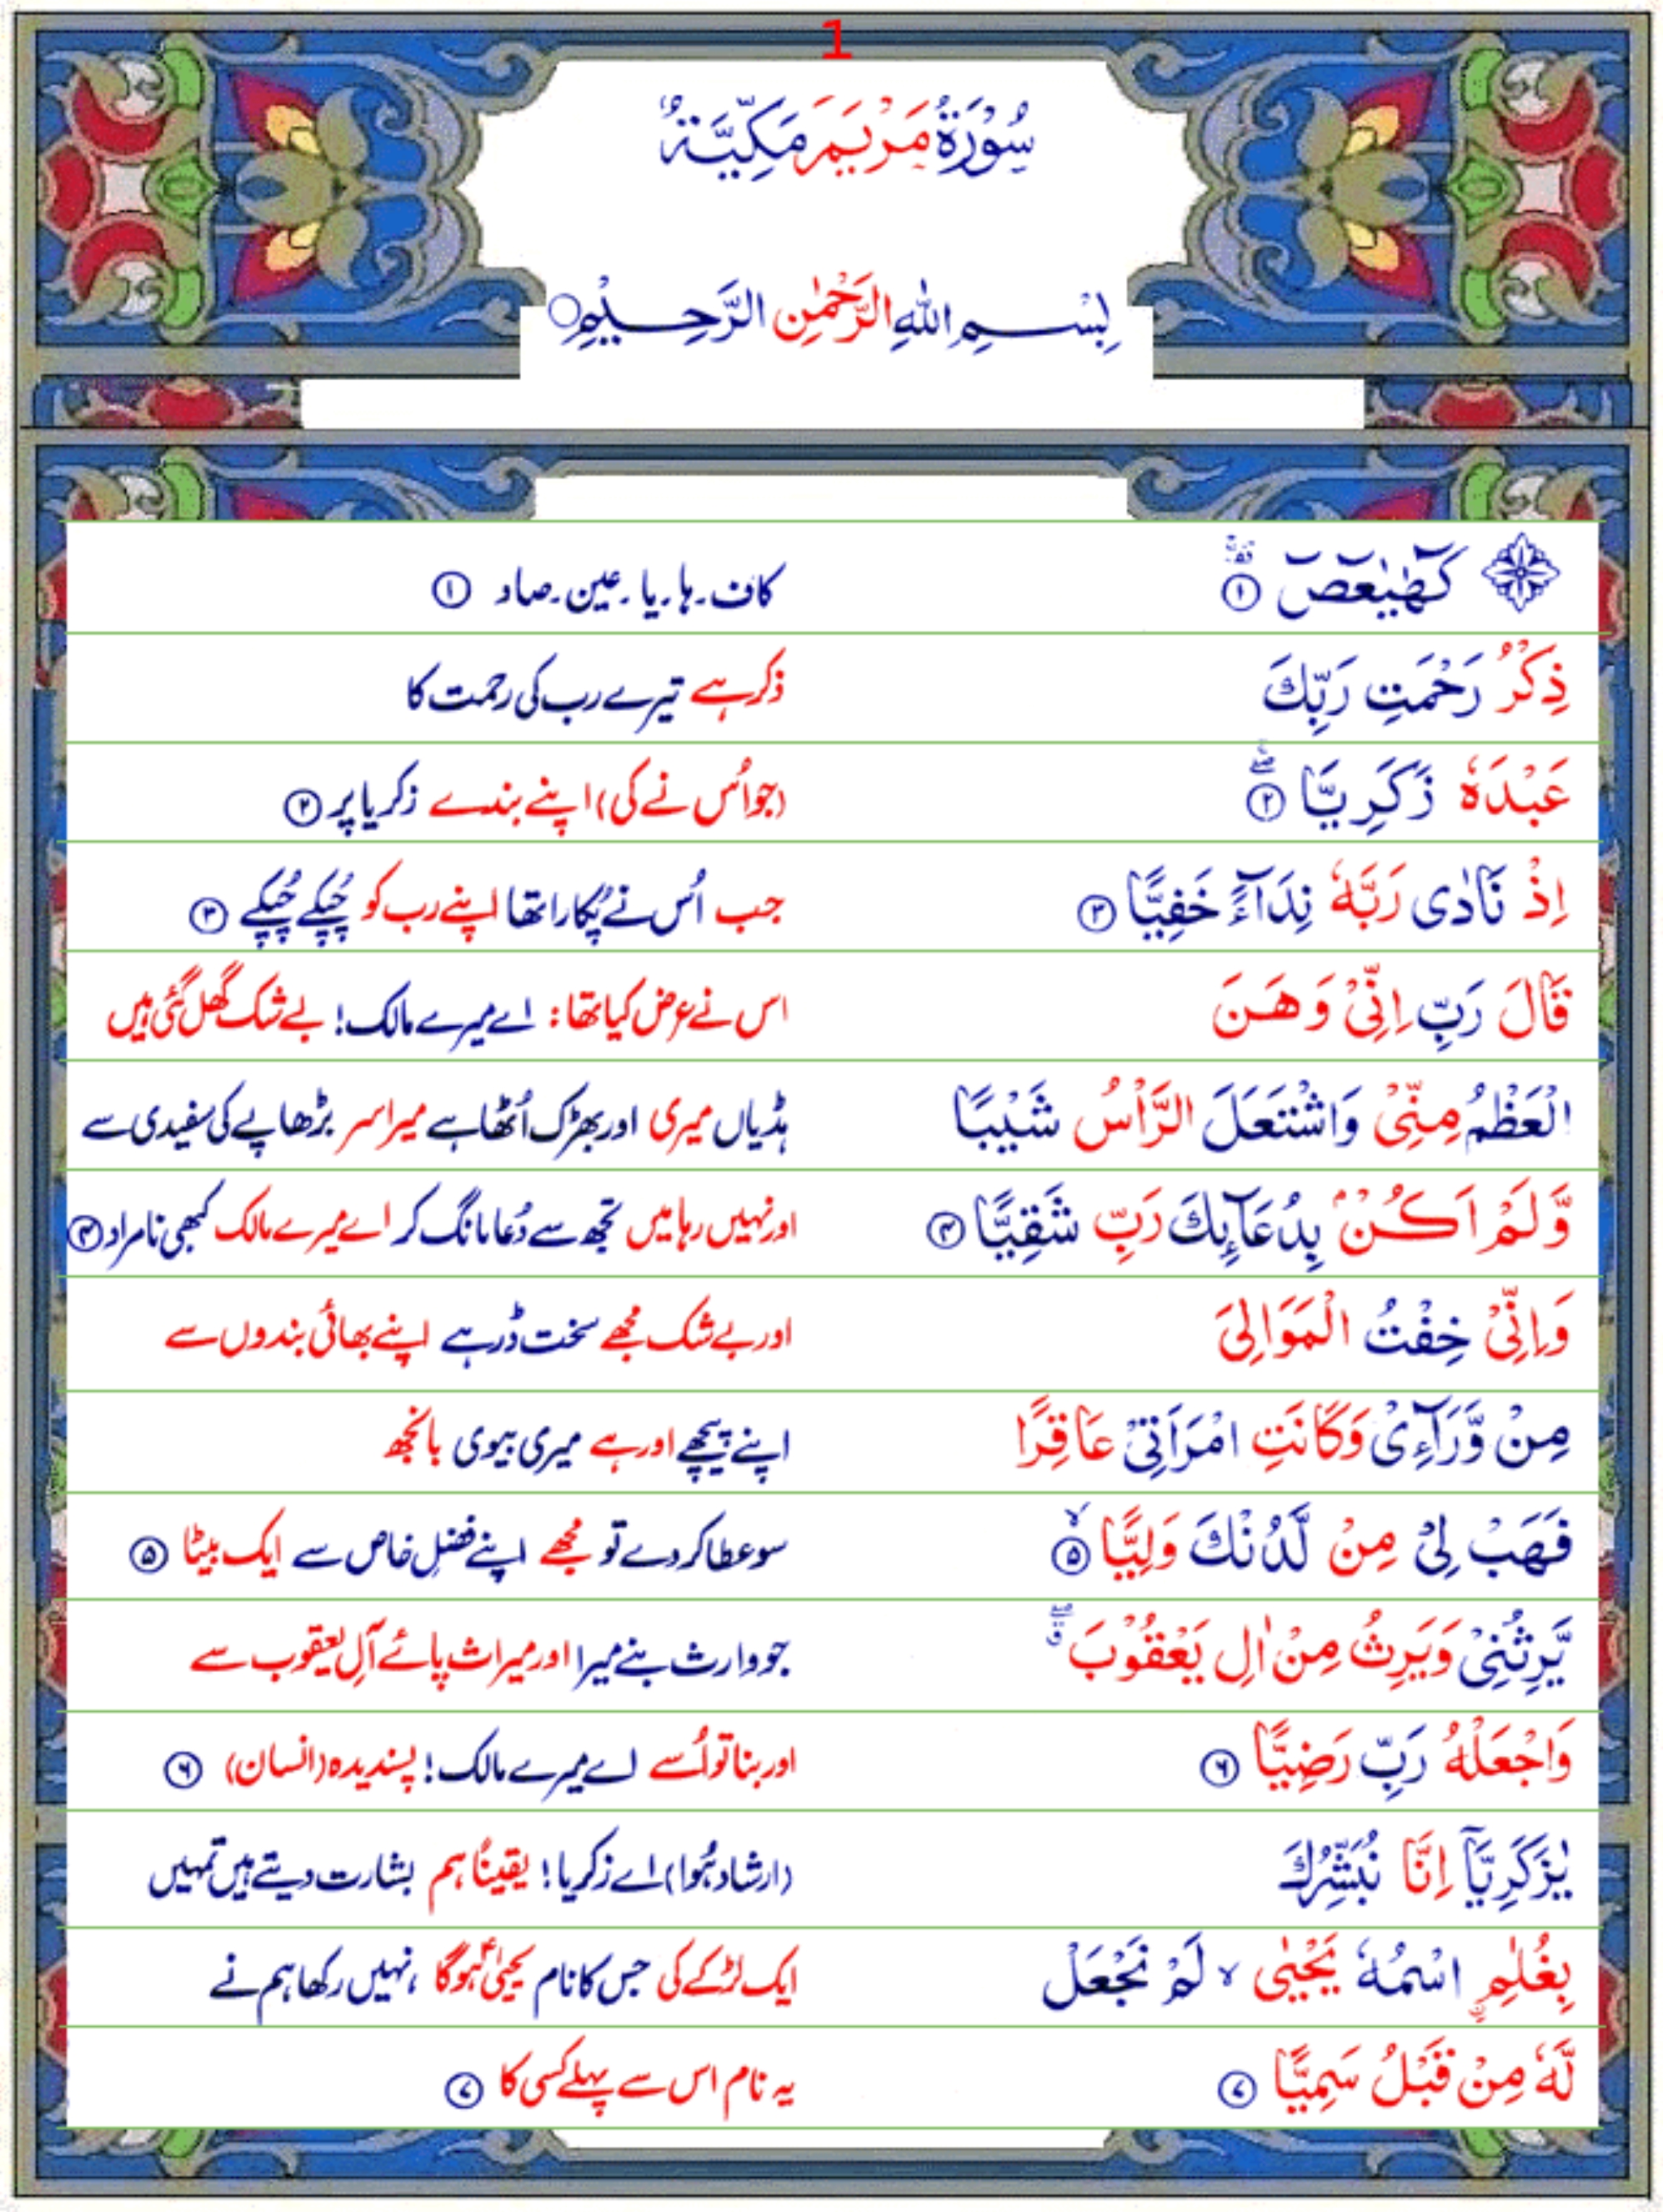 1
سُوْرَةُ مَرْيَمَ مَكِّيَّةٌ
بِسْمِ اللّٰهِ الرَّحْمٰنِ الرَّحِيْمِ○
كٓهٰيٰعٓصٓ ۚ۬ۖ ① کاف۔ہا۔یا۔عین۔صاد ①
ذِكْرُ رَحْمَتِ رَبِّكَ ذکر ہے تیرے رب کی رحمت کا
عَبْدَهٗ زَكَرِيَّا ۖۚ ② (جو اُس نے کی) اپنے بندے زکریا پر ②
اِذْ نَادٰى رَبَّهٗ نِدَآءً خَفِيًّا ③ جب اُس نے پُکارا تھا اپنے رب کو چُپکے چُپکے ③
قَالَ رَبِّ اِنِّىْ وَهَنَ اس نے عرض کیا تھا: اے میرے مالک! بے شک گھل گئی ہیں
الْعَظْمُ مِنِّىْ وَاشْتَعَلَ الرَّاْسُ شَيْبًا ہڈیاں میری اور بھڑک اُٹھا ہے میرا سر بڑھاپے کی سفیدی سے
وَّلَمْ اَكُنْۢ بِدُعَآئِكَ رَبِّ شَقِيًّا ④ اور نہیں رہا میں تجھ سے دُعا مانگ کر اے میرے مالک کبھی نامراد ④
وَاِنِّىْ خِفْتُ الْمَوَالِىَ اور بے شک مجھے سخت ڈر ہے اپنے بھائی بندوں سے
مِنْ وَّرَآءِىْ وَكَانَتِ امْرَاَتِىْ عَاقِرًا اپنے پیچھے اور ہے میری بیوی بانجھ
فَهَبْ لِىْ مِنْ لَّدُنْكَ وَلِيًّا ۙ ⑤ سو عطا کر دے تو مجھے اپنے فضلِ خاص سے ایک بیٹا ⑤
يَّرِثُنِىْ وَيَرِثُ مِنْ اٰلِ يَعْقُوْبَ ۖۗ جو وارث بنے میرا اور میراث پائے آلِ یعقوب سے
وَاجْعَلْهُ رَبِّ رَضِيًّا ⑥ اور بنا تو اُسے اے میرے مالک! پسندیدہ (انسان) ⑥
يٰزَكَرِيَّآ اِنَّا نُبَشِّرُكَ (ارشاد ہُوا) اے زکریا! یقیناً ہم بشارت دیتے ہیں تمہیں
بِغُلٰمِ ۨاسْمُهٗ يَحْيٰى ۙ لَمْ نَجْعَلْ ایک لڑکے کی جس کا نام یحییٰؑ ہوگا ،نہیں رکھا ہم نے
لَّهٗ مِنْ قَبْلُ سَمِيًّا ⑦ یہ نام اس سے پہلے کسی کا ⑦